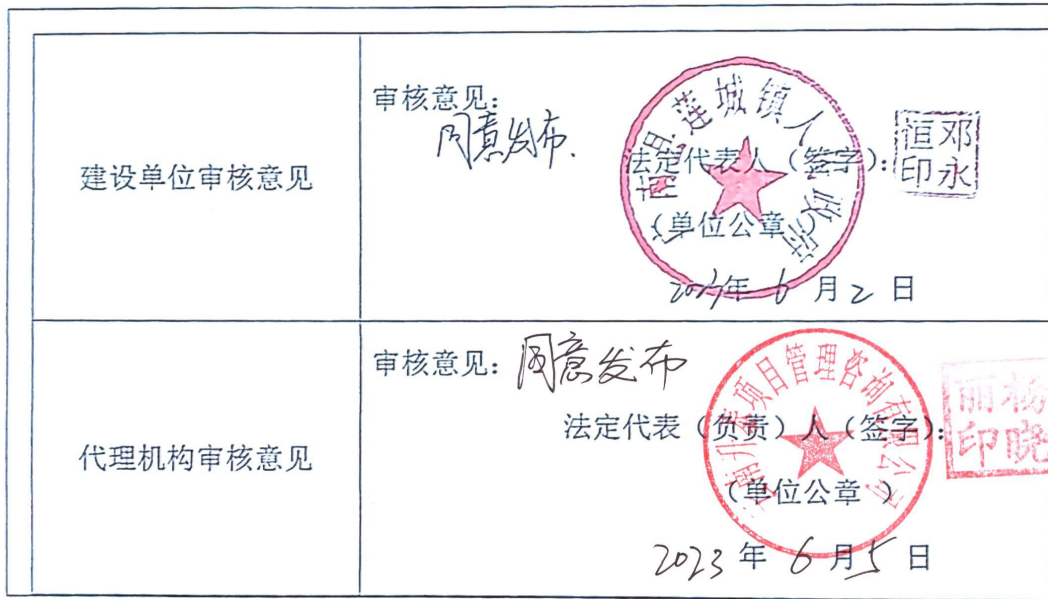 建设单位审核意见
审核意见:
同意发布.
法定代表人(签字):
邓永恒印
(单位公章)
广南县莲城镇人民政府
2023年6月2日
代理机构审核意见
审核意见:同意发布
法定代表(负责)人(签字):
杨晓丽印
(单位公章)
项目管理咨询有限公司
2023年6月5日